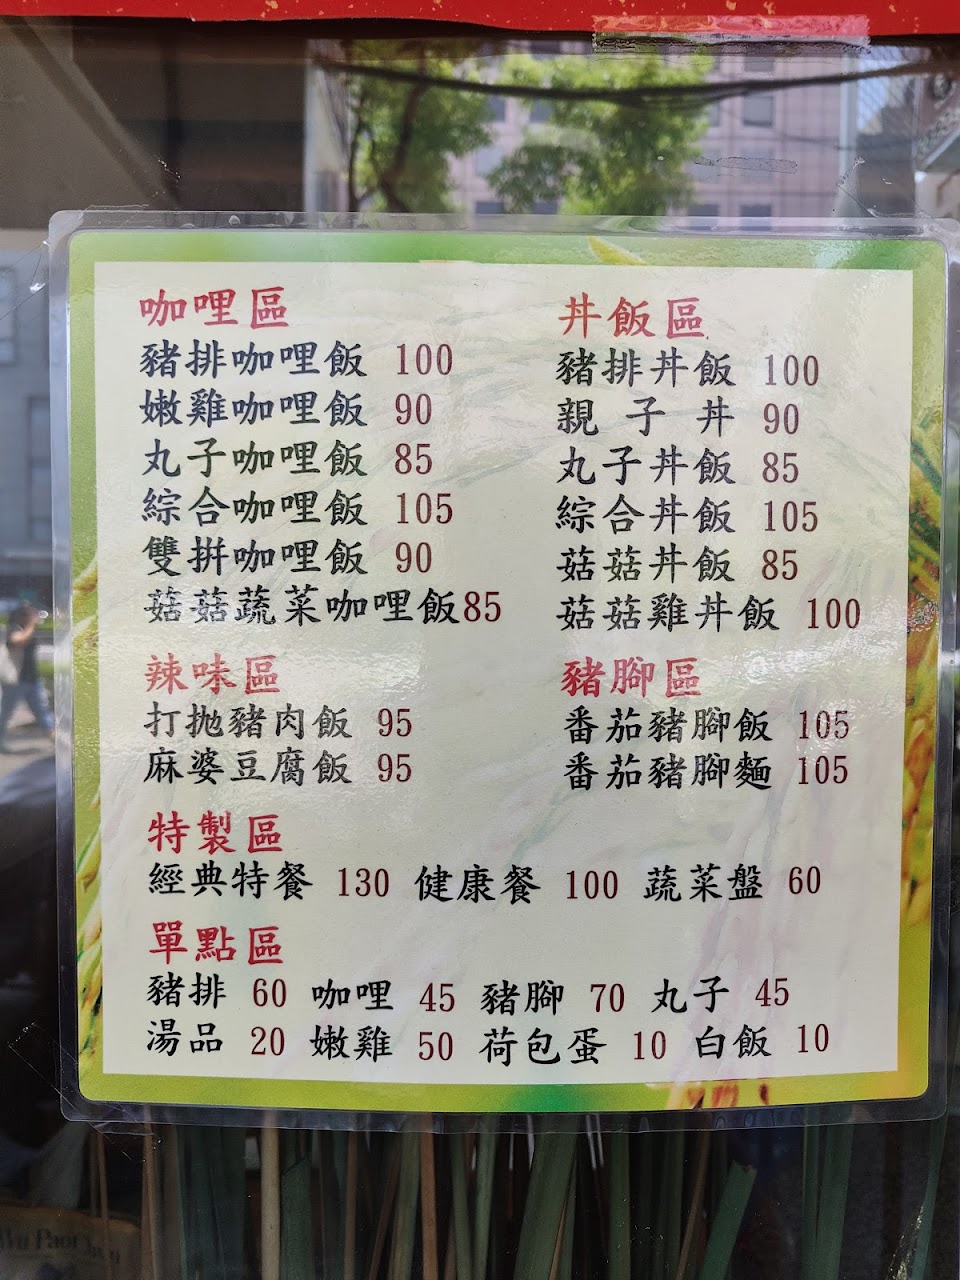 咖哩區
豬排咖哩飯 100
嫩雞咖哩飯 90
丸子咖哩飯 85
綜合咖哩飯 105
雙拼咖哩飯 90
菇菇蔬菜咖哩飯85
丼飯區
豬排丼飯 100
親子丼 90
丸子丼飯 85
綜合丼飯 105
菇菇丼飯 85
菇菇雞丼飯 100
辣味區
打拋豬肉飯 95
麻婆豆腐飯 95
豬腳區
番茄豬腳飯 105
番茄豬腳麵 105
特製區
經典特餐 130 健康餐 100 蔬菜盤 60
單點區
豬排 60 咖哩 45 豬腳 70 丸子 45
湯品 20 嫩雞 50 荷包蛋 10 白飯 10